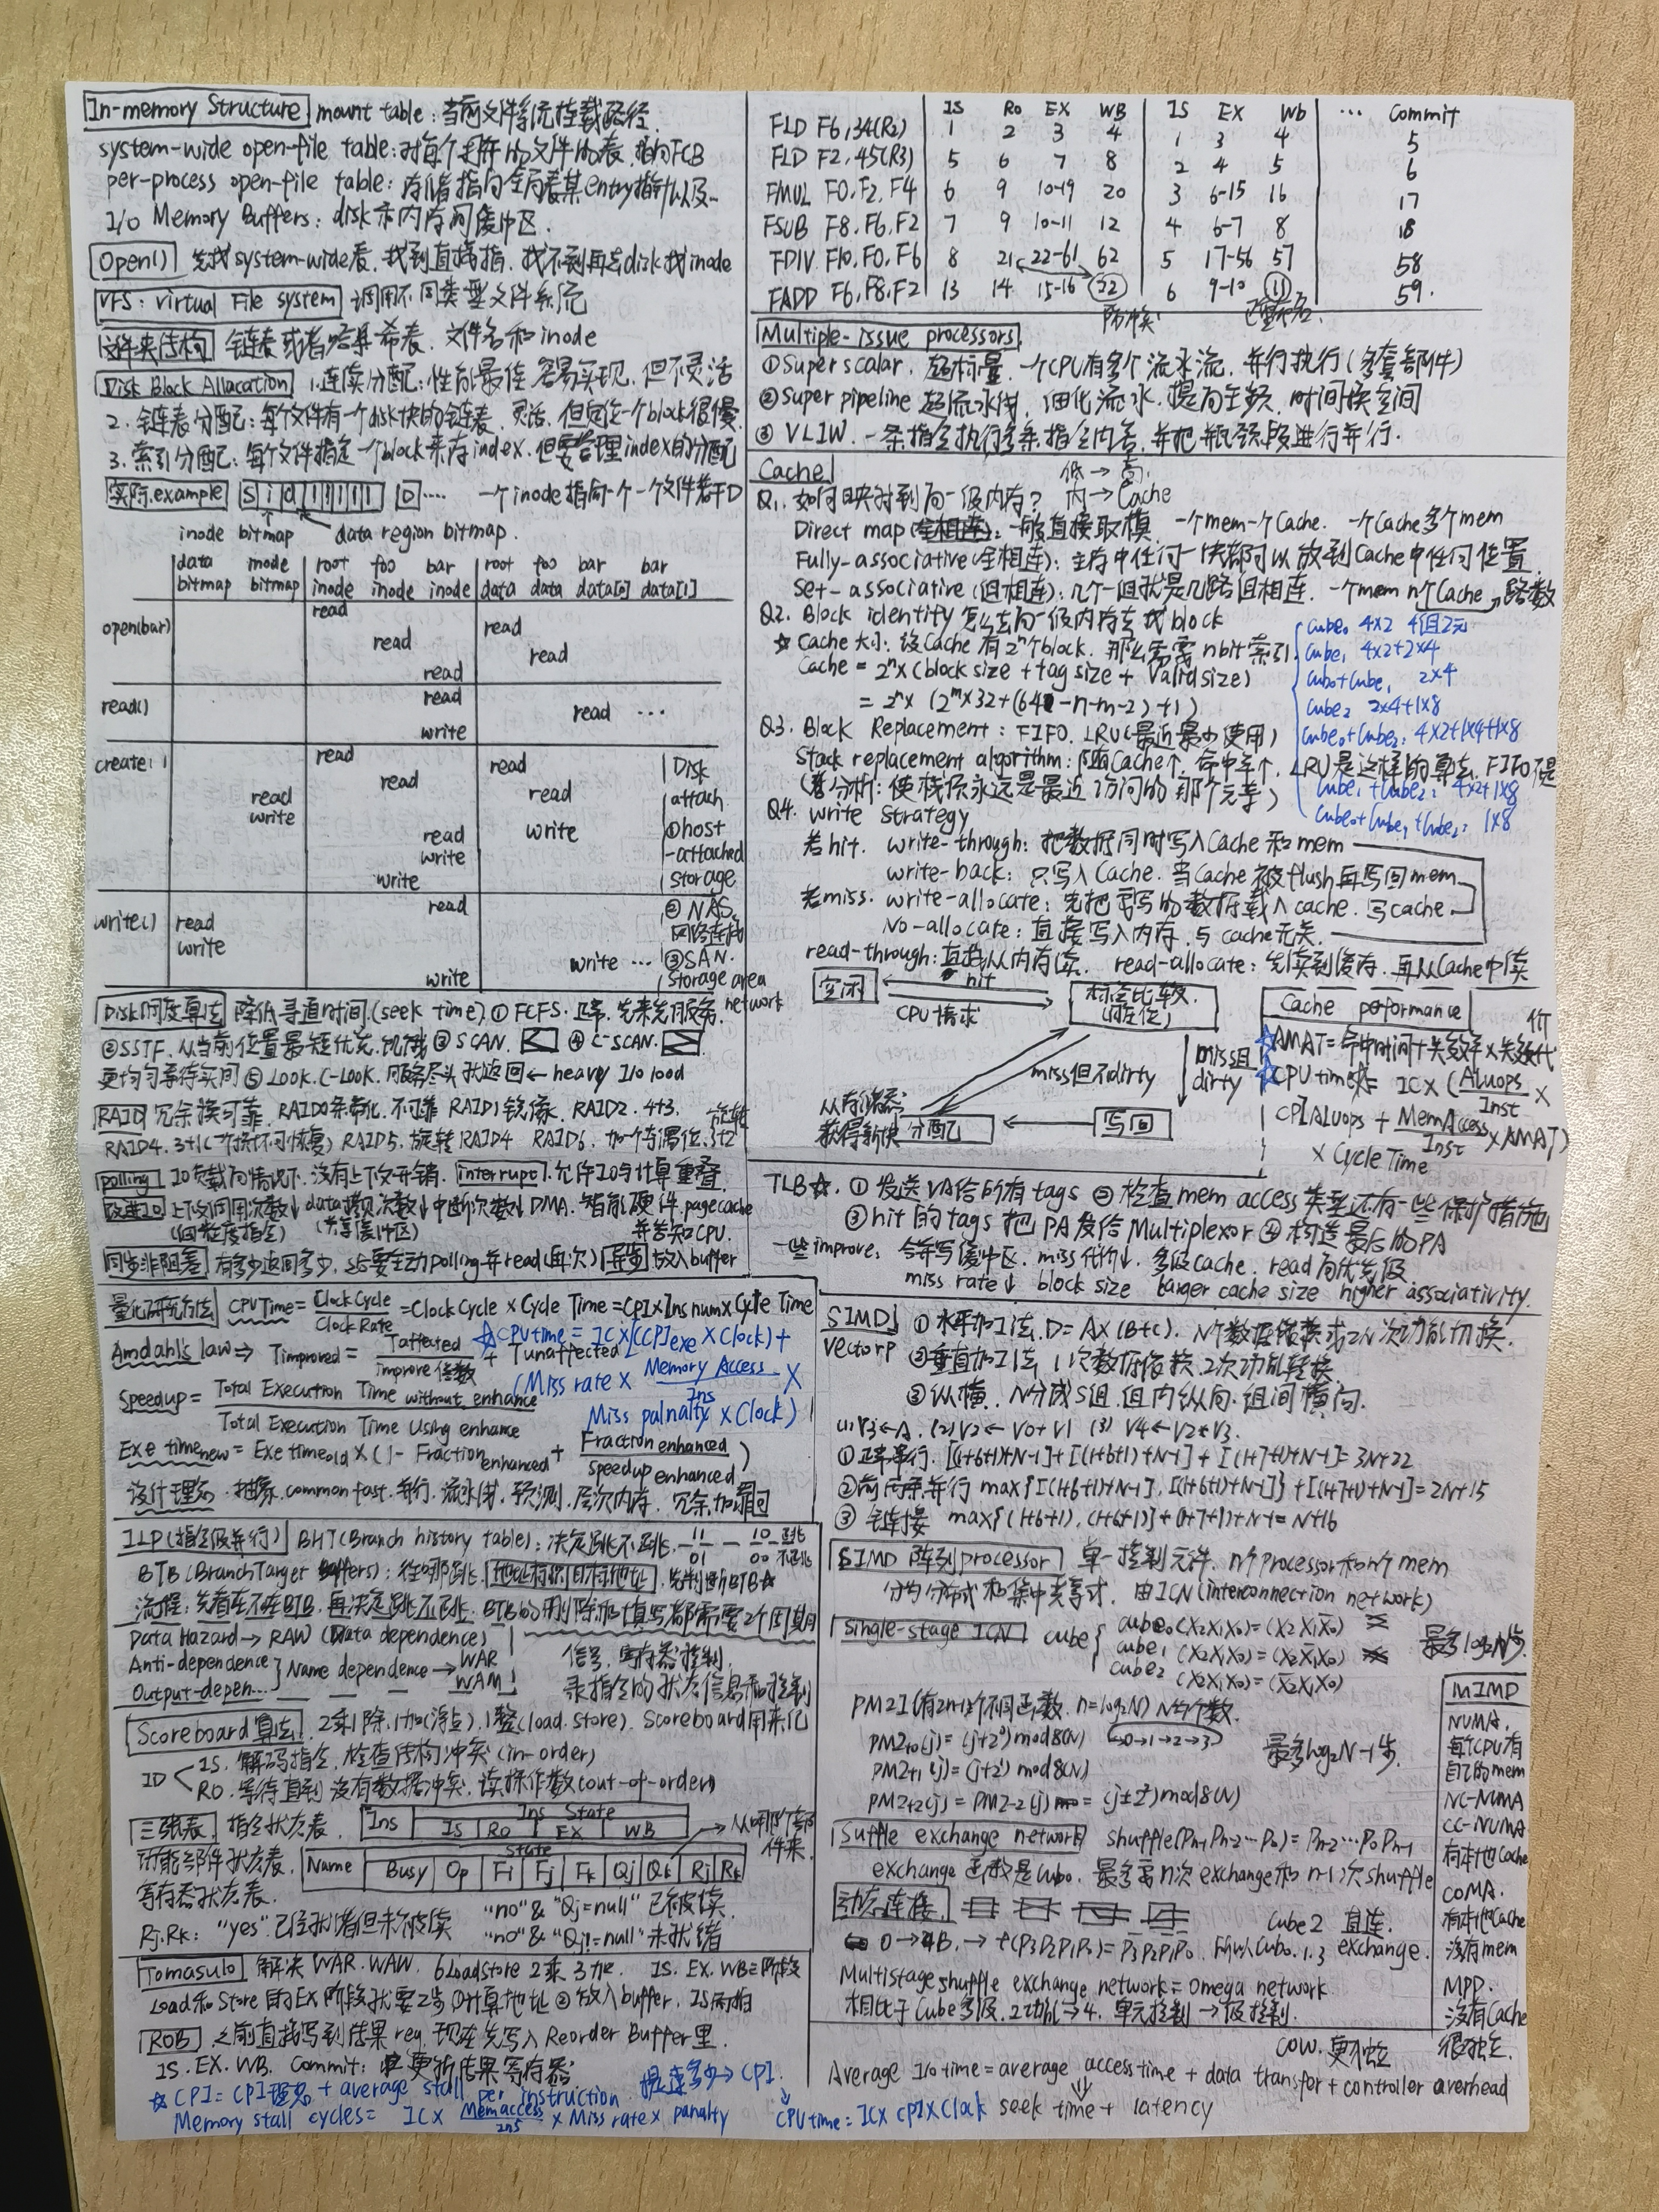 In-memory Structure mount table:当前文件系统挂载路径.
system-wide open-file table:对每个打开的文件的表,指向FCB
per-process open-file table:存储着指向全局表某entry指针以及…
I/O Memory Buffers: disk和内存间缓冲区.
Open() 先找system-wide表,找到直接指,找不到再去disk找inode
VFS: virtual File system 调用不同类型文件系统
文件夹结构 链表或者哈希表. 文件名和inode
Disk Block Allacation 1.连续分配:性能最佳 容易实现, 但不灵活
2. 链表分配:每个文件有一个disk块的链表. 灵活, 但定位一个block很慢
3. 索引分配:每个文件指定一个block来存index.但要合理index的分配
实际.example S i d D .... 一个inode指向一个文件若干D
inode bitmap data region bitmap.
data bitmap inode bitmap root inode foo inode bar inode root data foo data bar data[0] bar data[1]
open(bar) read
read read
read read
read
read() read
read ...
write
create() read
read read
read read
write
read write
write
write
write() read
read
write
write ...
write
Disk attach
①host-attached storage
②NAS. 网络连接
③SAN. storage area network
Disk调度算法 降低寻道时间.(seek time) ① FCFS. 正常. 先来先服务.
②SSTF. 从当前位置最短优先. 饥饿 ③ SCAN. ④ C-SCAN.
更均匀等待实间 ⑤ LOOK. C-LOOK. 服务尽头就返回 ← heavy I/o load
RAID 冗余换可靠. RAID0条带化. 不可靠 RAID1镜像. RAID2. 4+3.
RAID4. 3+1(一个损坏可恢复) RAID5. 旋转RAID4 RAID6. 加一个奇偶位. 3+2
polling IO负载高情况下. 没有上下文开销. interrupt. 允许IO与计算重叠
改进IO 上下文调用次数↓ data搬硕次数↓ 中断次数↓ DMA. 智能硬件. page cache
(共享缓冲区) 并告知CPU.
同步非阻塞 有多少返回多少, 之后要主动polling并read(再次) 异步 放入buffer
量化研究方法 CPUTime = Clock Cycle / Clock Rate = Clock Cycle × Cycle Time = CPI × Ins num × Cycle Time
Amdahl's law ⇒ Timproved = Taffected / improve倍数 + Tunaffected
☆CPUtime = IC×[(CPIexe × Clock) +
(Miss rate × Memory Access / Ins ×
Miss palnalty × Clock)
Speedup = Total Execution Time without enhance / Total Execution Time Using enhance
Exe timenew = Exe timeold × (1 - Fraction enhanced + Fraction enhanced / speedup enhanced)
设计理念. 抽象. common fast. 并行. 流水线. 预测. 层次内存. 冗余.
ILP(指令级并行) BHT(Branch history table): 决定跳不跳. 11 01 — 10 跳 00 不跳
BTB(Branch Target Buffers): 往哪跳. 地址标识 目标地址. 先判断BTB☆
流程: 先看在不在BTB. 再决定跳不跳. BTB的删除和填写都需要2个周期
Data Hazard → RAW (Data dependence)
Anti-dependence
Output-depen... } Name dependence → WAR
WAM
信号, 寄存器控制.
录指令的状态信息和控制
Scoreboard算法. 2乘1除, 1加(浮点), 1整(load. store). Scoreboard用来记
ID IS. 解码指令, 检查结构冲突(in-order)
RO. 等待直到没有数据冲突, 读操作数(out-of-order)
三张表. 指令状态表. Ins Ins State IS RO EX WB
功能部件状态表. Name state Busy Op Fi Fj Fk Qj Qk Rj Rk 从哪个部件来.
寄存器状态表.
Rj. Rk: "yes" 已经就绪但未被读 "no" & "Qj=null" 已被读.
"no" & "Qj!=null" 未就绪
Tomasulo 解决WAR. WAW. 6LoadStore 2乘 3加. IS. EX. WB三阶段
Load和Store的EX阶段就要2步 ①计算地址 ② 放入buffer.
ROB 之前直接写到结果reg. 现在先写入Reorder Buffer里.
IS. EX. WB. Commit: 更新结果寄存器
☆ CPI = CPI理想 + average stall per instruction 提速多少 → CPI.
Memory stall cycles = IC × Memaccess / Ins × Miss rate × panalty
CPUtime = IC × CPI × Clock
IS Ro EX WB IS EX Wb ... Commit
FLD F6, 34(R2) 1 2 3 4 1 3 4 5
FLD F2, 45(R3) 5 6 7 8 2 4 5 6
FMUL F0, F2, F4 6 9 10-19 20 3 6-15 16 17
FSUB F8, F6, F2 7 9 10-11 12 4 6-7 8 18
FDIV F10, F0, F6 8 21 22-61 62 5 17-56 57 58
FADD F6, F8, F2 13 14 15-16 22 6 9-10 11 59.
Multiple-issue processors.
①Super scalar. 超标量. 一个CPU有多个流水流. 并行执行(多套部件)
②Super pipeline 超流水线. 细化流水. 提高主频. 时间换空间
③ VLIW. 一条指令执行多条指令内容, 并把瓶颈段进行并行.
Cache 低→高.
Q1. 如何映射到高一级内存? 内→Cache
Direct map: 一般直接取模. 一个mem一个Cache. 一个Cache多个mem
Fully-associative(全相连): 主存中任何一块都可以放到Cache中任何位置
Set-associative(组相连): 几个一组就是几路组相连. 一个mem n个Cache →路数
Q2. Block identify 怎么去高一级内存去找block
☆ Cache大小: 设Cache有2ⁿ个block. 那么需要nbit索引.
Cache = 2ⁿ×(block size + tag size + Valid size)
= 2ⁿ× (2ᵐ×32+(64-n-m-2)+1)
Q3. Block Replacement: FIFO. LRU(最近最少使用)
Stack replacement algorithm: 随Cache↑ 命中率↑. LRU是这样的算法. FIFO不是
(分析: 使栈顶永远是最近访问的那个元素)
cube0 4×2 4组2元
cube1 4×2+2×4
cub0+cube1 2×4
cube2 2×4+1×8
cube0+cube2: 4×2+1×4+1×8
cube1+cube2: 4×2+1×8
cube0+cube1+cube2: 1×8
Q4. write strategy
若hit. write-through: 把数据同时写入Cache和mem
write-back: 只写入Cache. 当Cache被flush再写回mem
若miss. write-allocate: 先把要写的数据载入cache. 写cache
No-allocate: 直接写入内存. 与cache无关.
read-through: 直接从内存读. read-allocate: 先读到缓存. 再从Cache中读
空闲 hit CPU请求 标签比较.
miss但不dirty miss且dirty
从存储器获得新块 分配 写回
Cache performance
☆AMAT = 命中时间+失效率×失效代价
☆CPU time = IC × (Aluops / Inst ×
CPIALUops + MemAccess / Inst × AMAT)
× Cycle Time
TLB☆. ① 发送VA给所有tags ② 检查mem access类型还有一些保护措施
③hit的tags把PA发给Multiplexor ④ 构造最后的PA
一些improve: 合并写缓冲区. miss代价↓. 多级cache. read高优先级
miss rate↓ block size larger cache size higher associativity.
SIMD ①水平加工法. D=A×(B+C). N个数据依赖或2N次功能切换.
Vector P ②垂直加工法 1次数据依赖. 2次功能转换
③纵横. N分成S组. 组内纵向. 组间横向.
(1) V3←A. (2) V2←V0+V1 (3) V4←V2*V3.
①正常串行. [(1+6+1)+N-1]+[(1+6+1)+N-1]+[(1+7+1)+N-1]=3N+22
②前两条并行 max{[(1+6+1)+N-1], [(1+6+1)+N-1]}+[(1+7+1)+N-1]=2N+15
③ 链接 max{(1+6+1), (1+6+1)}+(1+7+1)+N-1=N+16
SIMD 阵列processor 单一控制元件. n个processor和n个mem
分为分布式和集中共享式. 由ICN(interconnection network)
Single-stage ICN cube { cube0(X2X1X0)=(X2X1X̄0)
cube1(X2X1X0)=(X2X̄1X0)
cube2(X2X1X0)=(X̄2X1X0)
最多log2N步
PM2I(有2n-1个不同函数. n=log2N) N节个数.
PM2+0(j)=(j+2⁰)mod8(N) 0→1→2→3
PM2+1(j)=(j+2¹)mod8(N) 最多log2N-1步.
PM2+2(j)=PM2-2(j)=(j±2²)mod8(N)
Suffle exchange network shuffle(Pn-1Pn-2…P0)=Pn-2…P0Pn-1
exchange函数是Cub0. 最多需n次exchange和n-1次shuffle
动态连接 Cube2 直连.
0→4B. → f(P3P2P1P0)=P̄3P2P̄1P̄0. 所以Cub0.1.3 exchange.
Multistage shuffle exchange network = Omega network
相比于Cube多级. 2功能→4. 单元控制→级控制.
MIMD
NUMA.
每个CPU有
自己的mem
NC-NUMA
CC-NUMA
有本地Cache
COMA.
有本地Cache
没有mem
MPP.
没有Cache
很独立.
COW. 更独立
Average I/o time = average access time + data transfer + controller overhead
seek time + latency